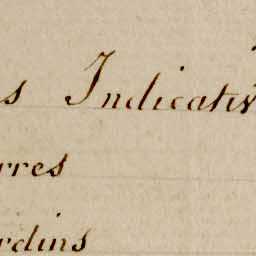 s Indicativ
rres
rdins